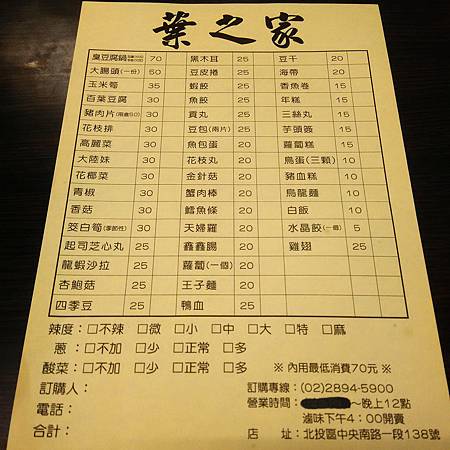 葉之家
臭豆腐鍋 70 黑木耳 25 豆干 20
大腸頭(一份) 50 豆皮捲 25 海帶 20
玉米筍 35 蝦餃 25 香魚卷 15
百葉豆腐 30 魚餃 25 年糕 15
豬肉片 30 貢丸 25 三絲丸 15
花枝排 30 豆包(兩片) 25 芋頭簽 15
高麗菜 30 魚包蛋 20 蘿蔔糕 15
大陸妹 30 花枝丸 20 鳥蛋(三顆) 10
花椰菜 30 金針菇 20 豬血糕 10
青椒 30 蟹肉棒 20 烏龍麵 10
香菇 30 鱈魚條 20 白飯 10
茭白筍(季節性) 30 天婦羅 20 水晶餃(一個) 5
起司芝心丸 25 鑫鑫腸 20 雞翅 25
龍蝦沙拉 25 蘿蔔(一個) 20
杏鮑菇 25 王子麵 20
四季豆 25 鴨血 20
辣度：□不辣 □微 □小 □中 □大 □特 □麻
蔥：□不加 □少 □正常 □多
酸菜：□不加 □少 □正常 □多 ※ 內用最低消費70元 ※
訂購人： 訂購專線：(02)2894-5900
電話： 營業時間： ～晚上12點
滷味下午4：00開賣
合計： 店 址：北投區中央南路一段138號